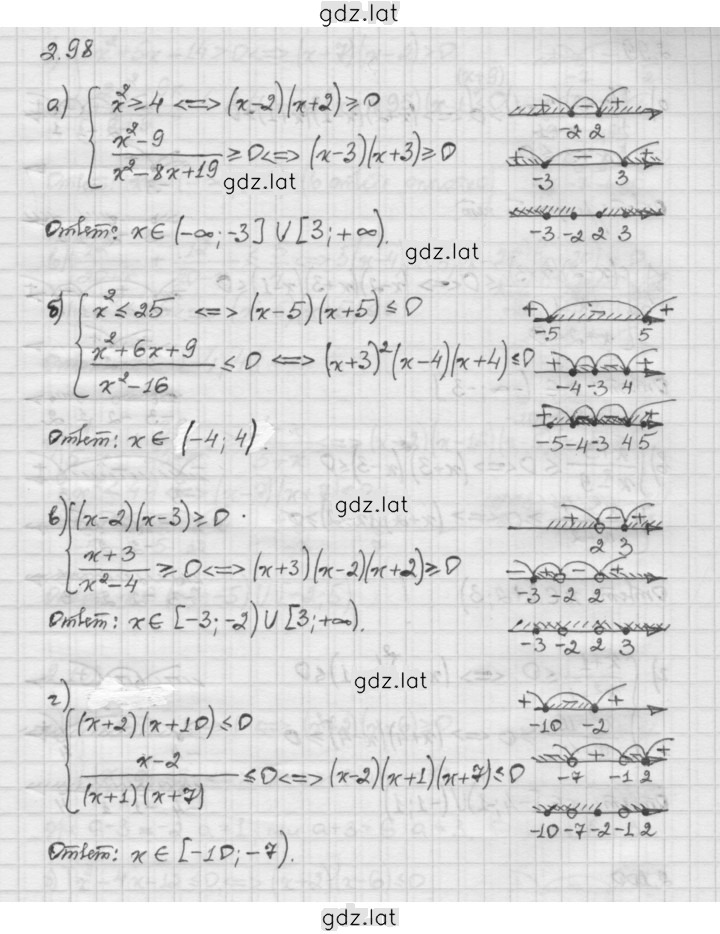 gdz.lat
2.98
а) { x² ≥ 4 <=> (x-2)(x+2) ≥ 0
(x²-9)/(x²-8x+19) ≥ 0 <=> (x-3)(x+3) ≥ 0
+ - +
-2 2
+ - +
-3 3
gdz.lat
-3 -2 2 3
Ответ: x ∈ (-∞; -3] ∪ [3; +∞).
gdz.lat
б) { x² ≤ 25 <=> (x-5)(x+5) ≤ 0
(x²+6x+9)/(x²-16) ≤ 0 <=> (x+3)²(x-4)(x+4) ≤ 0
+ - +
-5 5
+ - - +
-4 -3 4
-5 -4 -3 4 5
Ответ: x ∈ (-4; 4).
gdz.lat
в) { (x-2)(x-3) ≥ 0
(x+3)/(x²-4) ≥ 0 <=> (x+3)(x-2)(x+2) ≥ 0
+ - +
2 3
- + - +
-3 -2 2
-3 -2 2 3
Ответ: x ∈ [-3; -2) ∪ [3; +∞).
gdz.lat
г) { (x+2)(x+10) ≤ 0
(x-2)/((x+1)(x+7)) ≤ 0 <=> (x-2)(x+1)(x+7) ≤ 0
+ - +
-10 -2
- + - +
-7 -1 2
-10 -7 -2 -1 2
Ответ: x ∈ [-10; -7).
gdz.lat